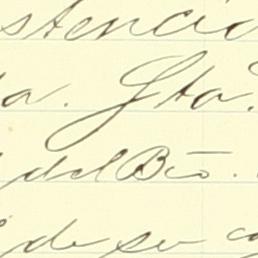 stencia
a. Gta.
del Bro.
de su